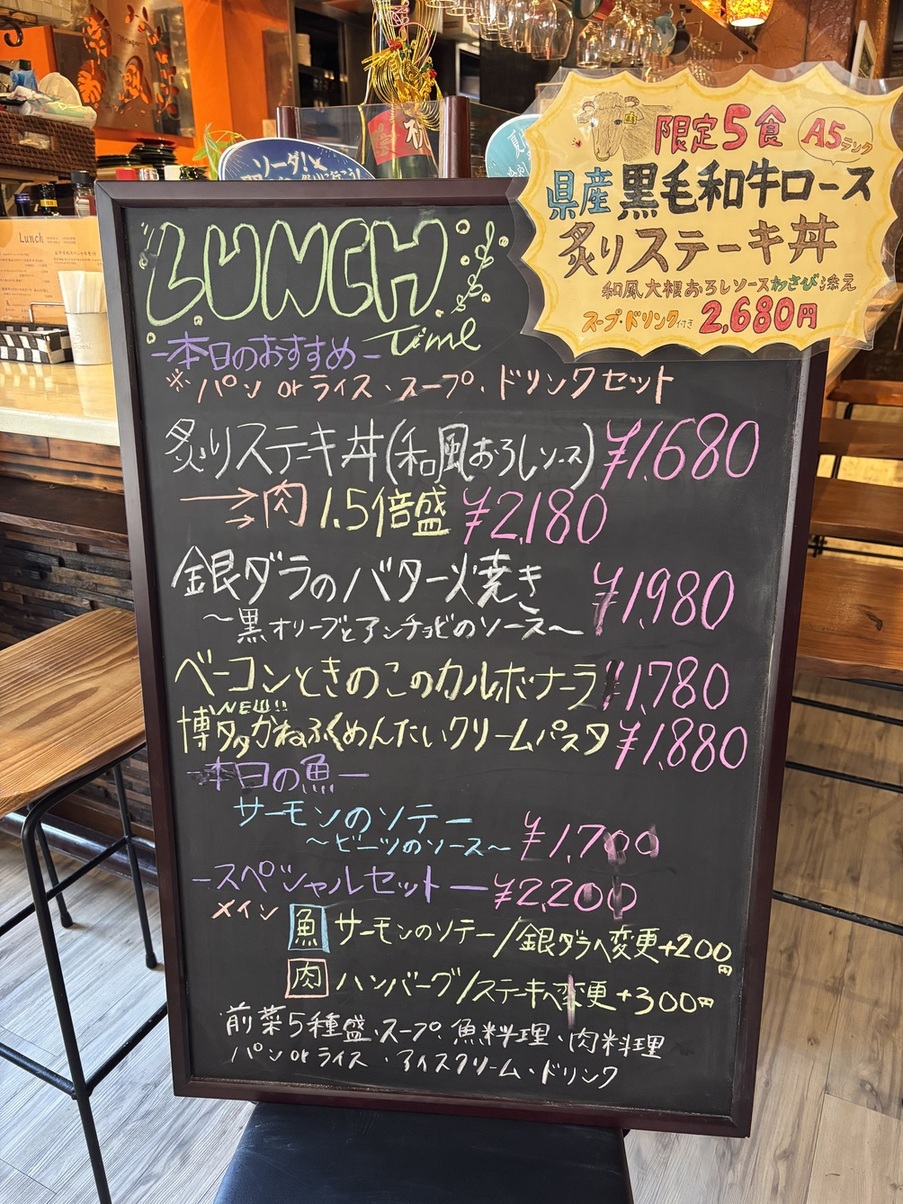 限定5食
A5ランク
県産黒毛和牛ロース
炙りステーキ丼
和風大根おろしソースわさび添え
スープ・ドリンク付き 2,680円
ソーダ!
Lunch
LUNCH
Time
-本日のおすすめ-
※パン or ライス・スープ・ドリンクセット
炙りステーキ丼(和風おろしソース) ¥1,680
→肉1.5倍盛 ¥2,180
銀ダラのバター焼き ¥1,980
〜黒オリーブとアンチョビのソース〜
ベーコンときのこのカルボナーラ ¥1,780
NEW!!
博多かねふくめんたいクリームパスタ ¥1,880
-本日の魚-
サーモンのソテー
〜ビーツのソース〜 ¥1,700
-スペシャルセット- ¥2,200
メイン
魚 サーモンのソテー/銀ダラへ変更+200円
肉 ハンバーグ/ステーキへ変更+300円
前菜5種盛・スープ・魚料理・肉料理
パン or ライス・アイスクリーム・ドリンク